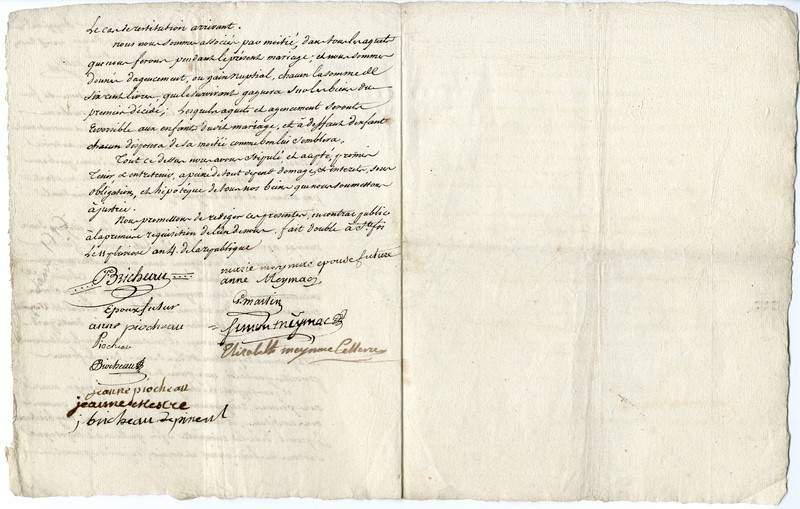 Le cas de restitution arrivant.
nous nous sommes associés par moitié, dans tous les aquets
que nous ferons pendant le présent mariage; et nous sommes
donnés d'agencement, ou gain nuptial, chacun la somme de
six cent livres que le survivant gagnera sur les biens du
premier décédé; Lesquels aquets et agencement seronts
reversible aux enfants dudit mariage, et à deffaut d'enfants
chacun disposera de sa moitié comme bon lui semblera.
Tout ce dessus nous avons stipulé, et accepté, promis
tenir & entretenir, a peine de tout depens domage & interets, sous
obligation, et hipotèque de tous nos biens que nous soumettons
à justice.
Nous promettons de rediger ces presentes, en contrat public
à la premiere requisition de l'un de nous. fait double à Ste foi
Le 11 pluviose an 4. de la republique
PBricheau
meymac epouse future
anne Meymac
Epoux futur
martin
anne piocheau
Simon Meymac
Piocheau
Elisabeth meymac
Piocheau
jeanne piocheau
jeanne
j bricheau